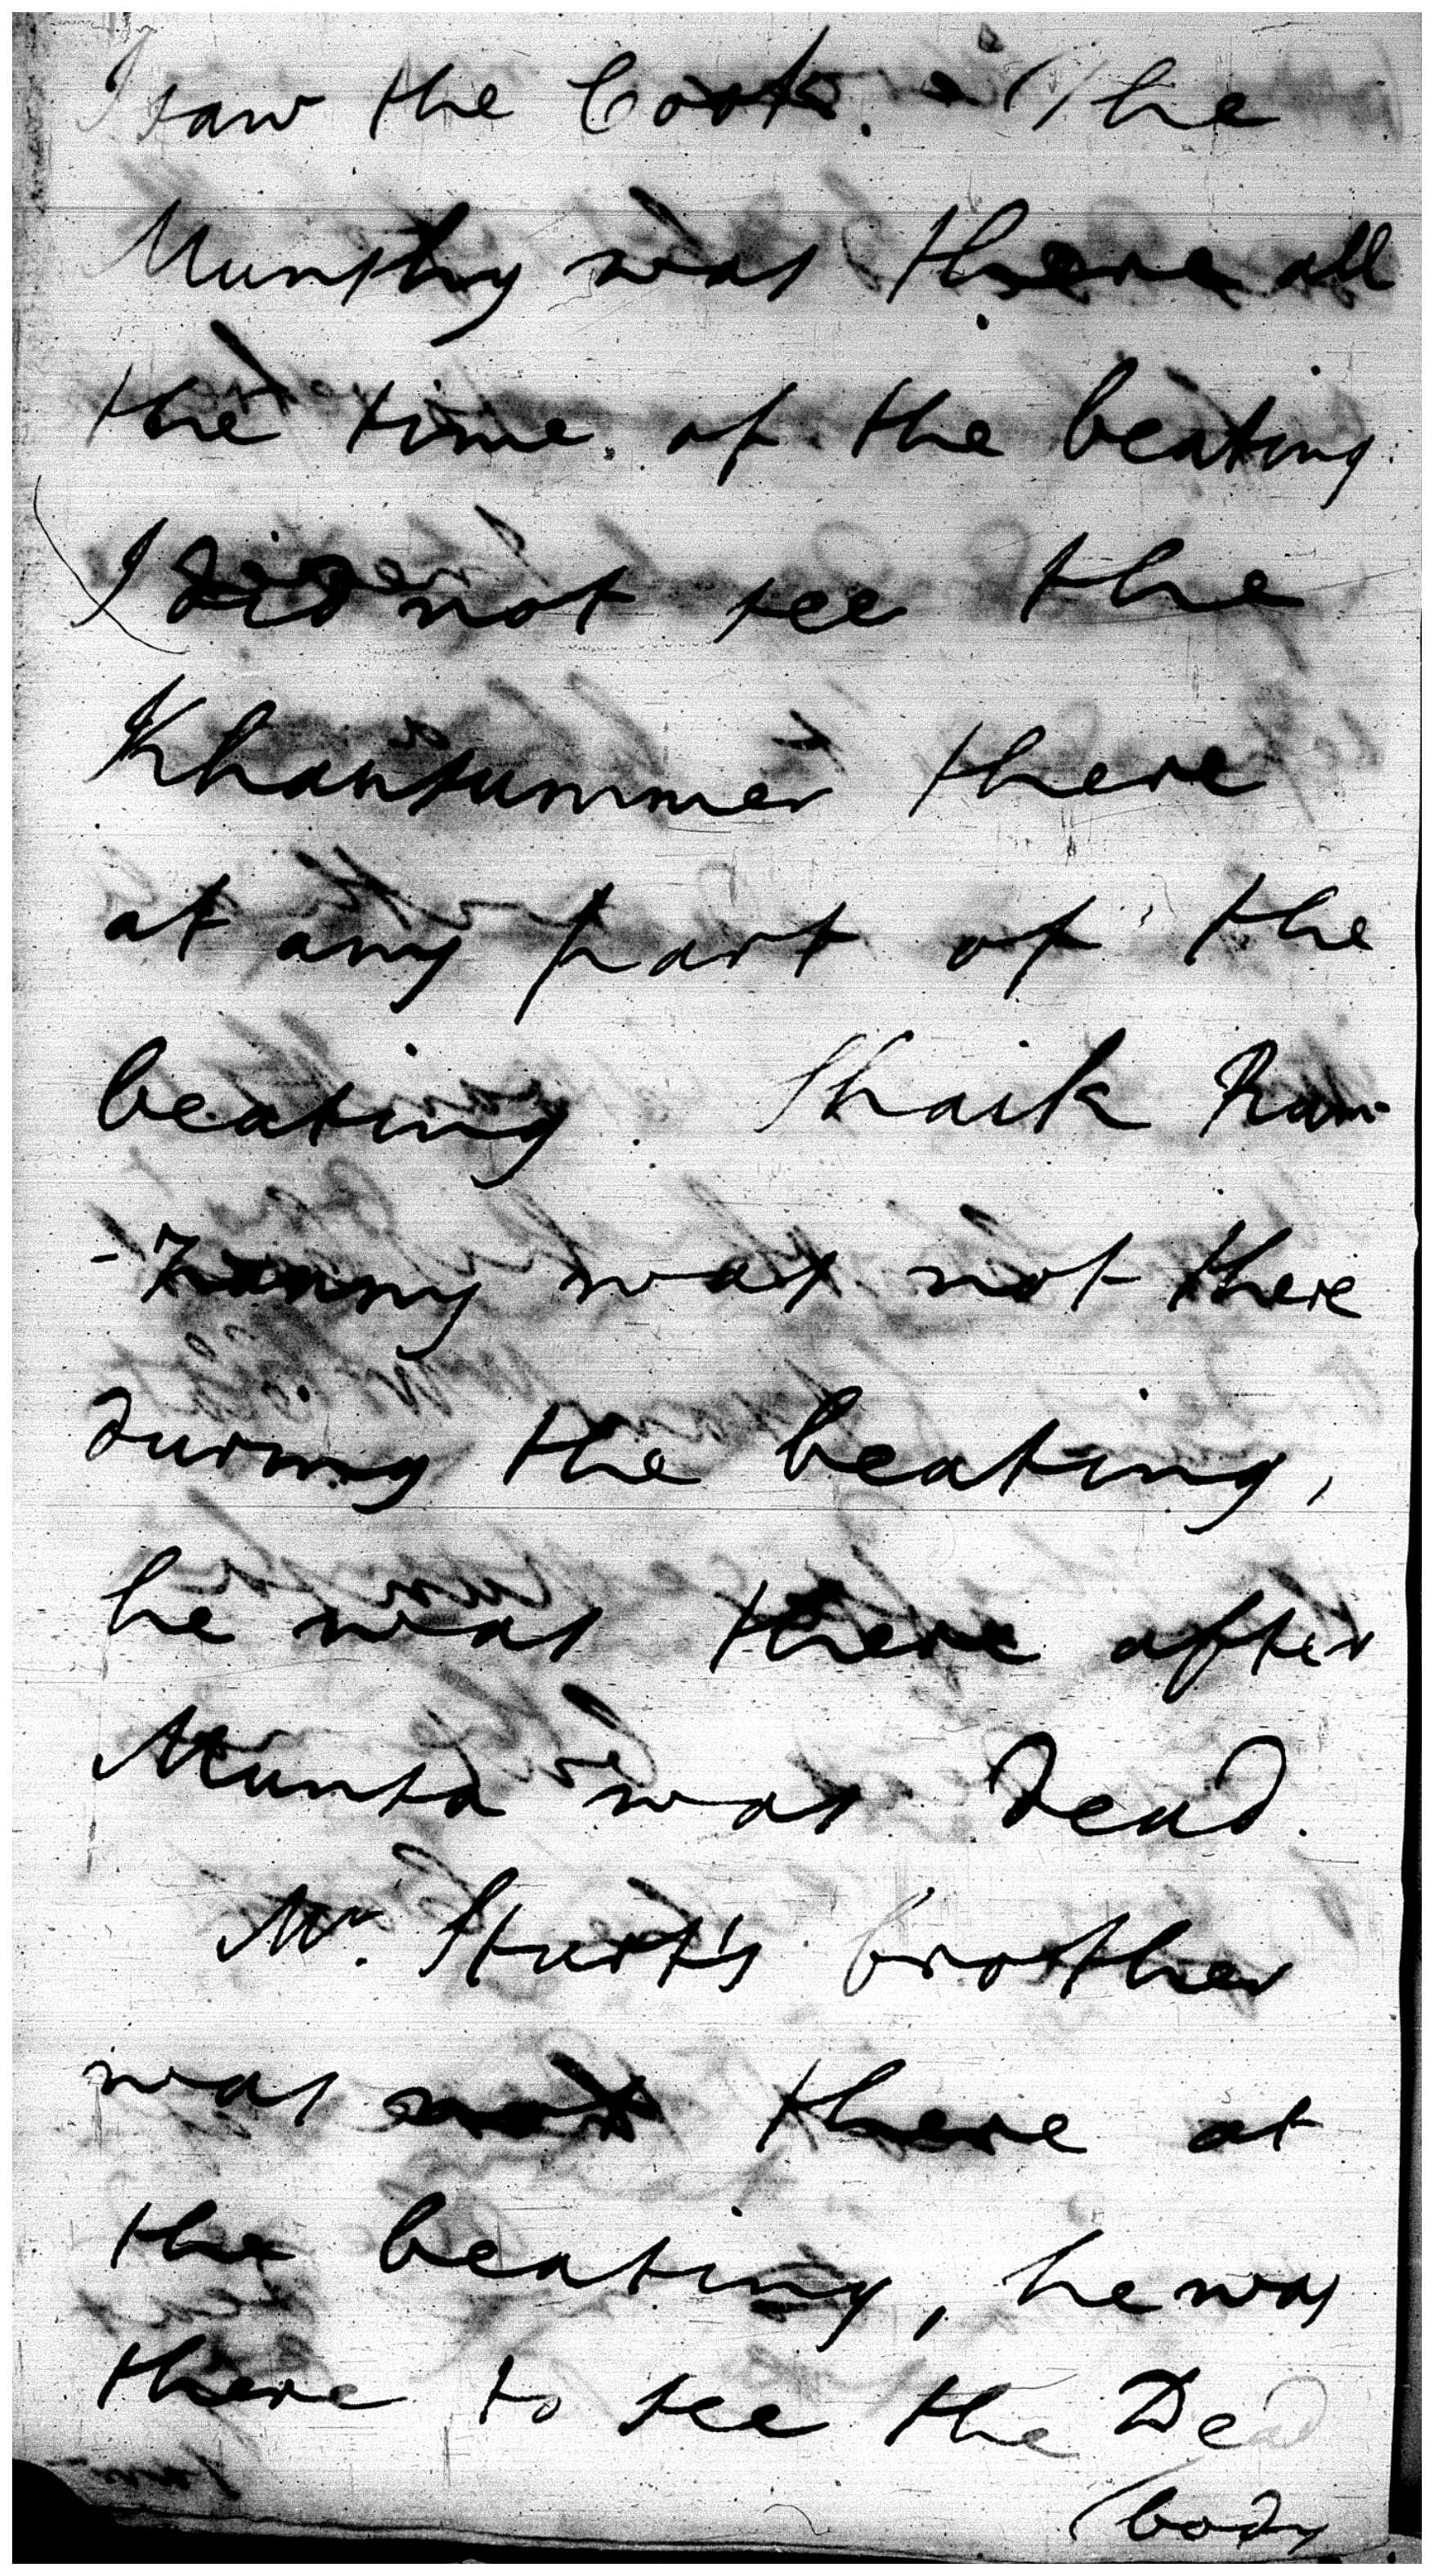 I saw the Cook. The
Munshy was there all
the time of the beating.
I did not see the
Khansummer there
at any part of the
beating. Shaik Ram-
-zanny was not there
during the beating,
he was there after
Munsa was dead.
Mr. Sturt's brother
was not there at
the beating, he was
there to see the Dead
body